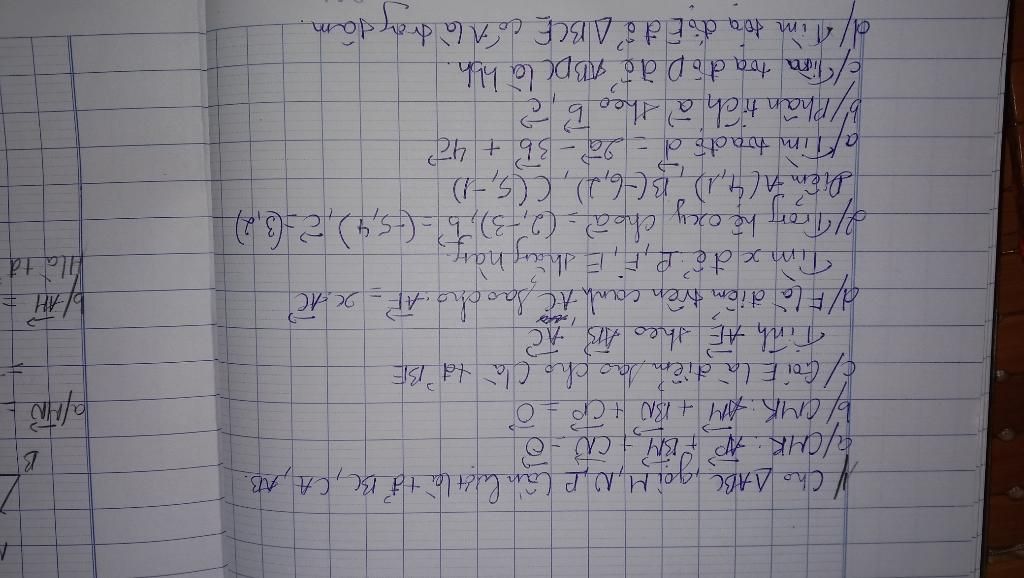 1/ Cho ΔABC, gọi M, N, P lần lượt là tđ BC, CA, AB.
a/ CMR: AP + BM + CN = 0
b/ CMR: AM + BN + CP = 0
c/ Gọi E là điểm sao cho C là tđ BE
Tính AE theo AB, AC
d/ F là điểm trên cạnh AC sao cho: AF = x AC
Tìm x để P, F, E thẳng hàng.
2/ Trong hệ oxy cho a = (2,-3), b = (-5,4), c = (3,2)
Điểm A(4,1), B(-6,2), C(5,-1)
a/ Tìm toạ độ d = 2a - 3b + 4c
b/ Phân tích a theo b, c
c/ Tìm toạ độ D để ABDC là hbh.
d/ Tìm toạ độ E để ΔBCE có A là trọng tâm.
B
a/ MN =
=
b/ AH =
H là tđ